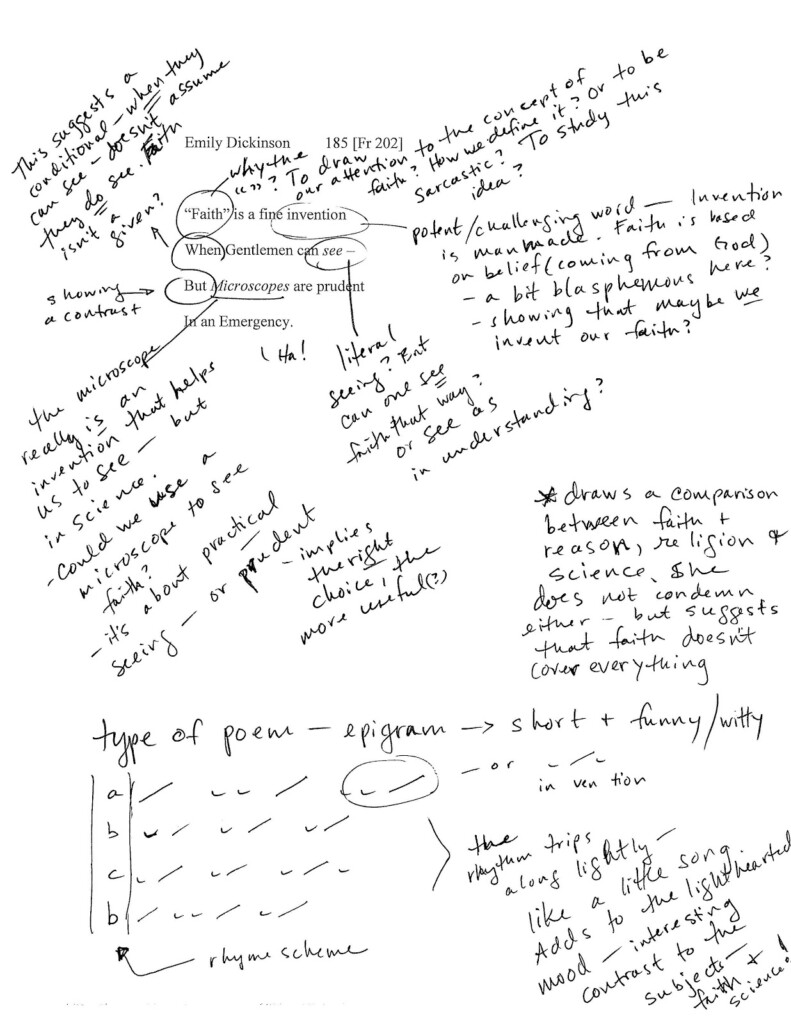 This suggests a
conditional – when they
can see – doesn't assume
they do see. Faith
isn't a
given?
Emily Dickinson 185 [Fr 202]
why the
“ ”? To draw
our attention to the concept of
faith? How we define it? Or to be
sarcastic? To study this
idea?
“Faith” is a fine invention
When Gentlemen can see –
But Microscopes are prudent
In an Emergency.
potent/challenging word — Invention
is manmade. Faith is based
on belief (coming from God)
- a bit blasphemous here?
- showing that maybe we
invent our faith?
showing
a contrast
Ha!
literal
seeing? But
can one see
faith that way?
or see as
in understanding?
the microscope
really is an
invention that helps
us to see – but
in science.
- Could we use a
microscope to see
faith?
- it's about practical
seeing – or prudent
- implies
the right
choice, the
more useful(?)
* draws a comparison
between faith +
reason, religion &
science. She
does not condemn
either – but suggests
that faith doesn't
cover everything
type of poem – epigram → short + funny/witty
a
b
c
b
– or
in ven tion
the
rhythm trips
along lightly –
like a little song.
Adds to the lighthearted
mood – interesting
contrast to the
subjects –
faith +
science!
rhyme scheme